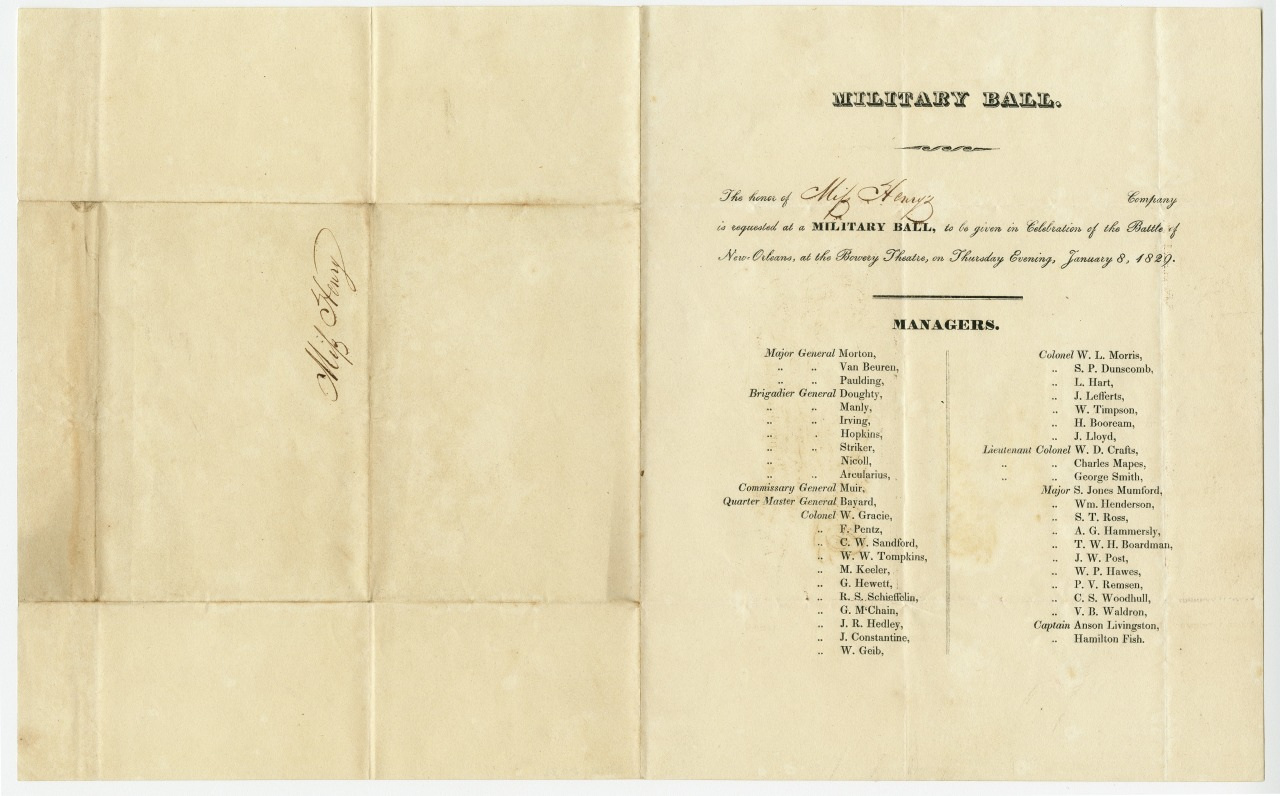 Miss Henry
MILITARY BALL.
The honor of Miss Henry's Company
is requested at a MILITARY BALL, to be given in Celebration of the Battle of
New-Orleans, at the Bowery Theatre, on Thursday Evening, January 8, 1829.
MANAGERS.
Major General Morton,
„ „ Van Beuren,
„ „ Paulding,
Brigadier General Doughty,
„ „ Manly,
„ „ Irving,
„ „ Hopkins,
„ „ Striker,
„ Nicoll,
„ „ Arcularius,
Commissary General Muir,
Quarter Master General Bayard,
Colonel W. Gracie,
„ F. Pentz,
„ C. W. Sandford,
„ W. W. Tompkins,
„ M. Keeler,
„ G. Hewett,
„ R. S. Schieffelin,
„ G. McChain,
„ J. R. Hedley,
„ J. Constantine,
„ W. Geib,
Colonel W. L. Morris,
„ S. P. Dunscomb,
„ L. Hart,
„ J. Lefferts,
„ W. Timpson,
„ H. Booream,
„ J. Lloyd,
Lieutenant Colonel W. D. Crafts,
„ „ Charles Mapes,
„ „ George Smith,
Major S. Jones Mumford,
„ Wm. Henderson,
„ S. T. Ross,
„ A. G. Hammersly,
„ T. W. H. Boardman,
„ J. W. Post,
„ W. P. Hawes,
„ P. V. Remsen,
„ C. S. Woodhull,
„ V. B. Waldron,
Captain Anson Livingston,
„ Hamilton Fish.